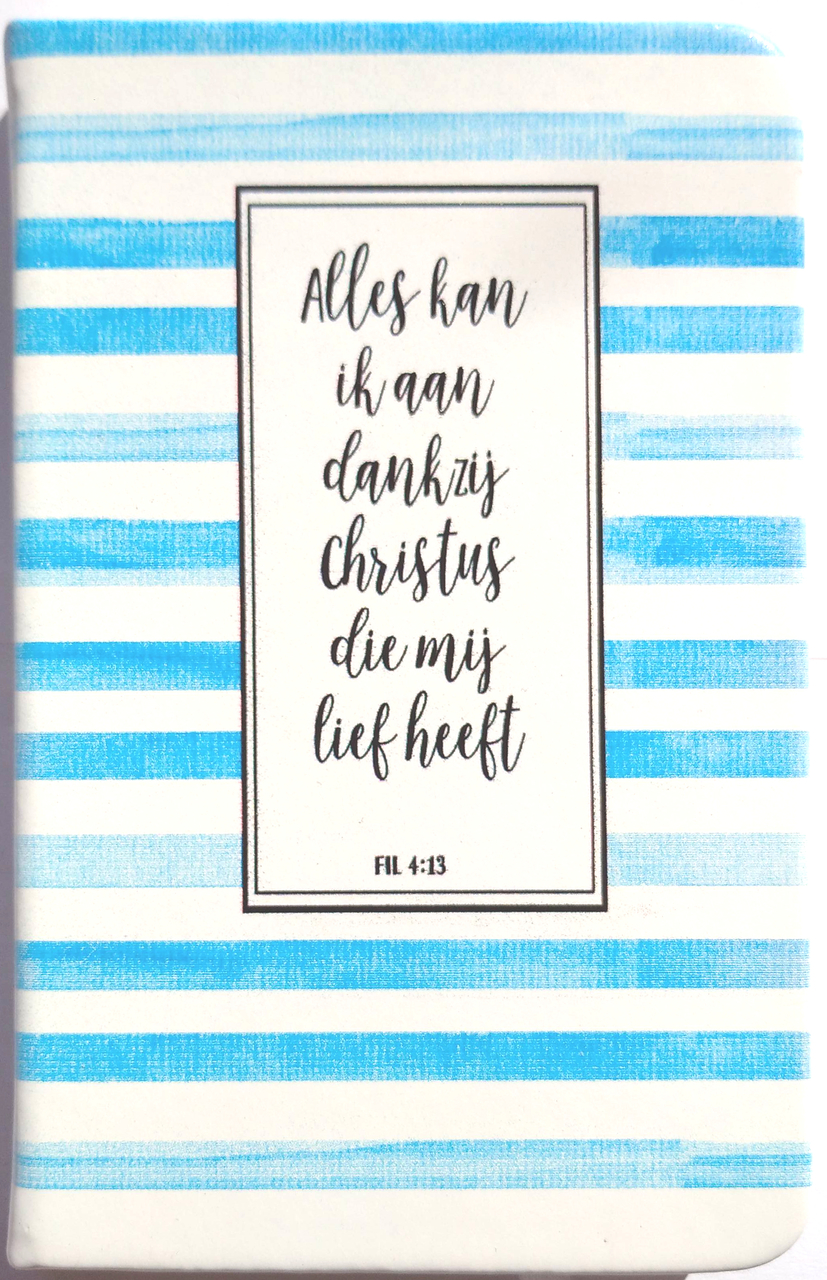 Alles kan
ik aan
dankzij
Christus
die mij
lief heeft
FIL 4:13